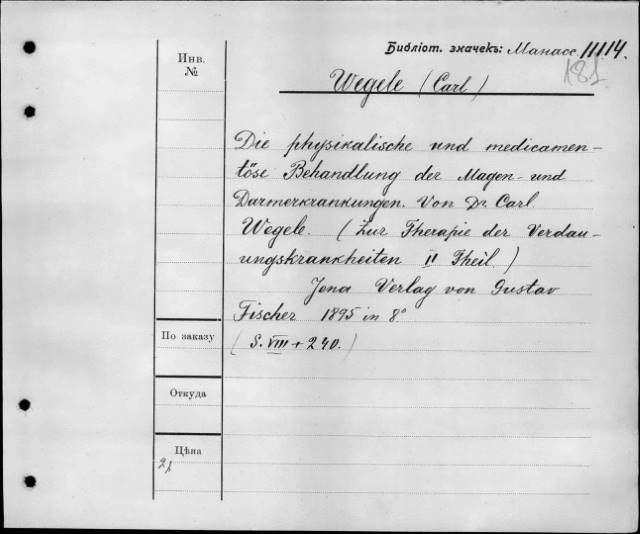 Инв.
№
Библіот. значекъ: Манасс. 11114.
К81
Wegele (Carl)
Die physikalische und medicamen-
töse Behandlung der Magen- und
Darmerkrankungen. Von Dr. Carl
Wegele. (Zur Therapie der Verdau-
ungskrankheiten II Theil.)
Jena Verlag von Gustav
Fischer 1895 in 8°
(S. VIII + 240.)
По заказу
Откуда
Цѣна